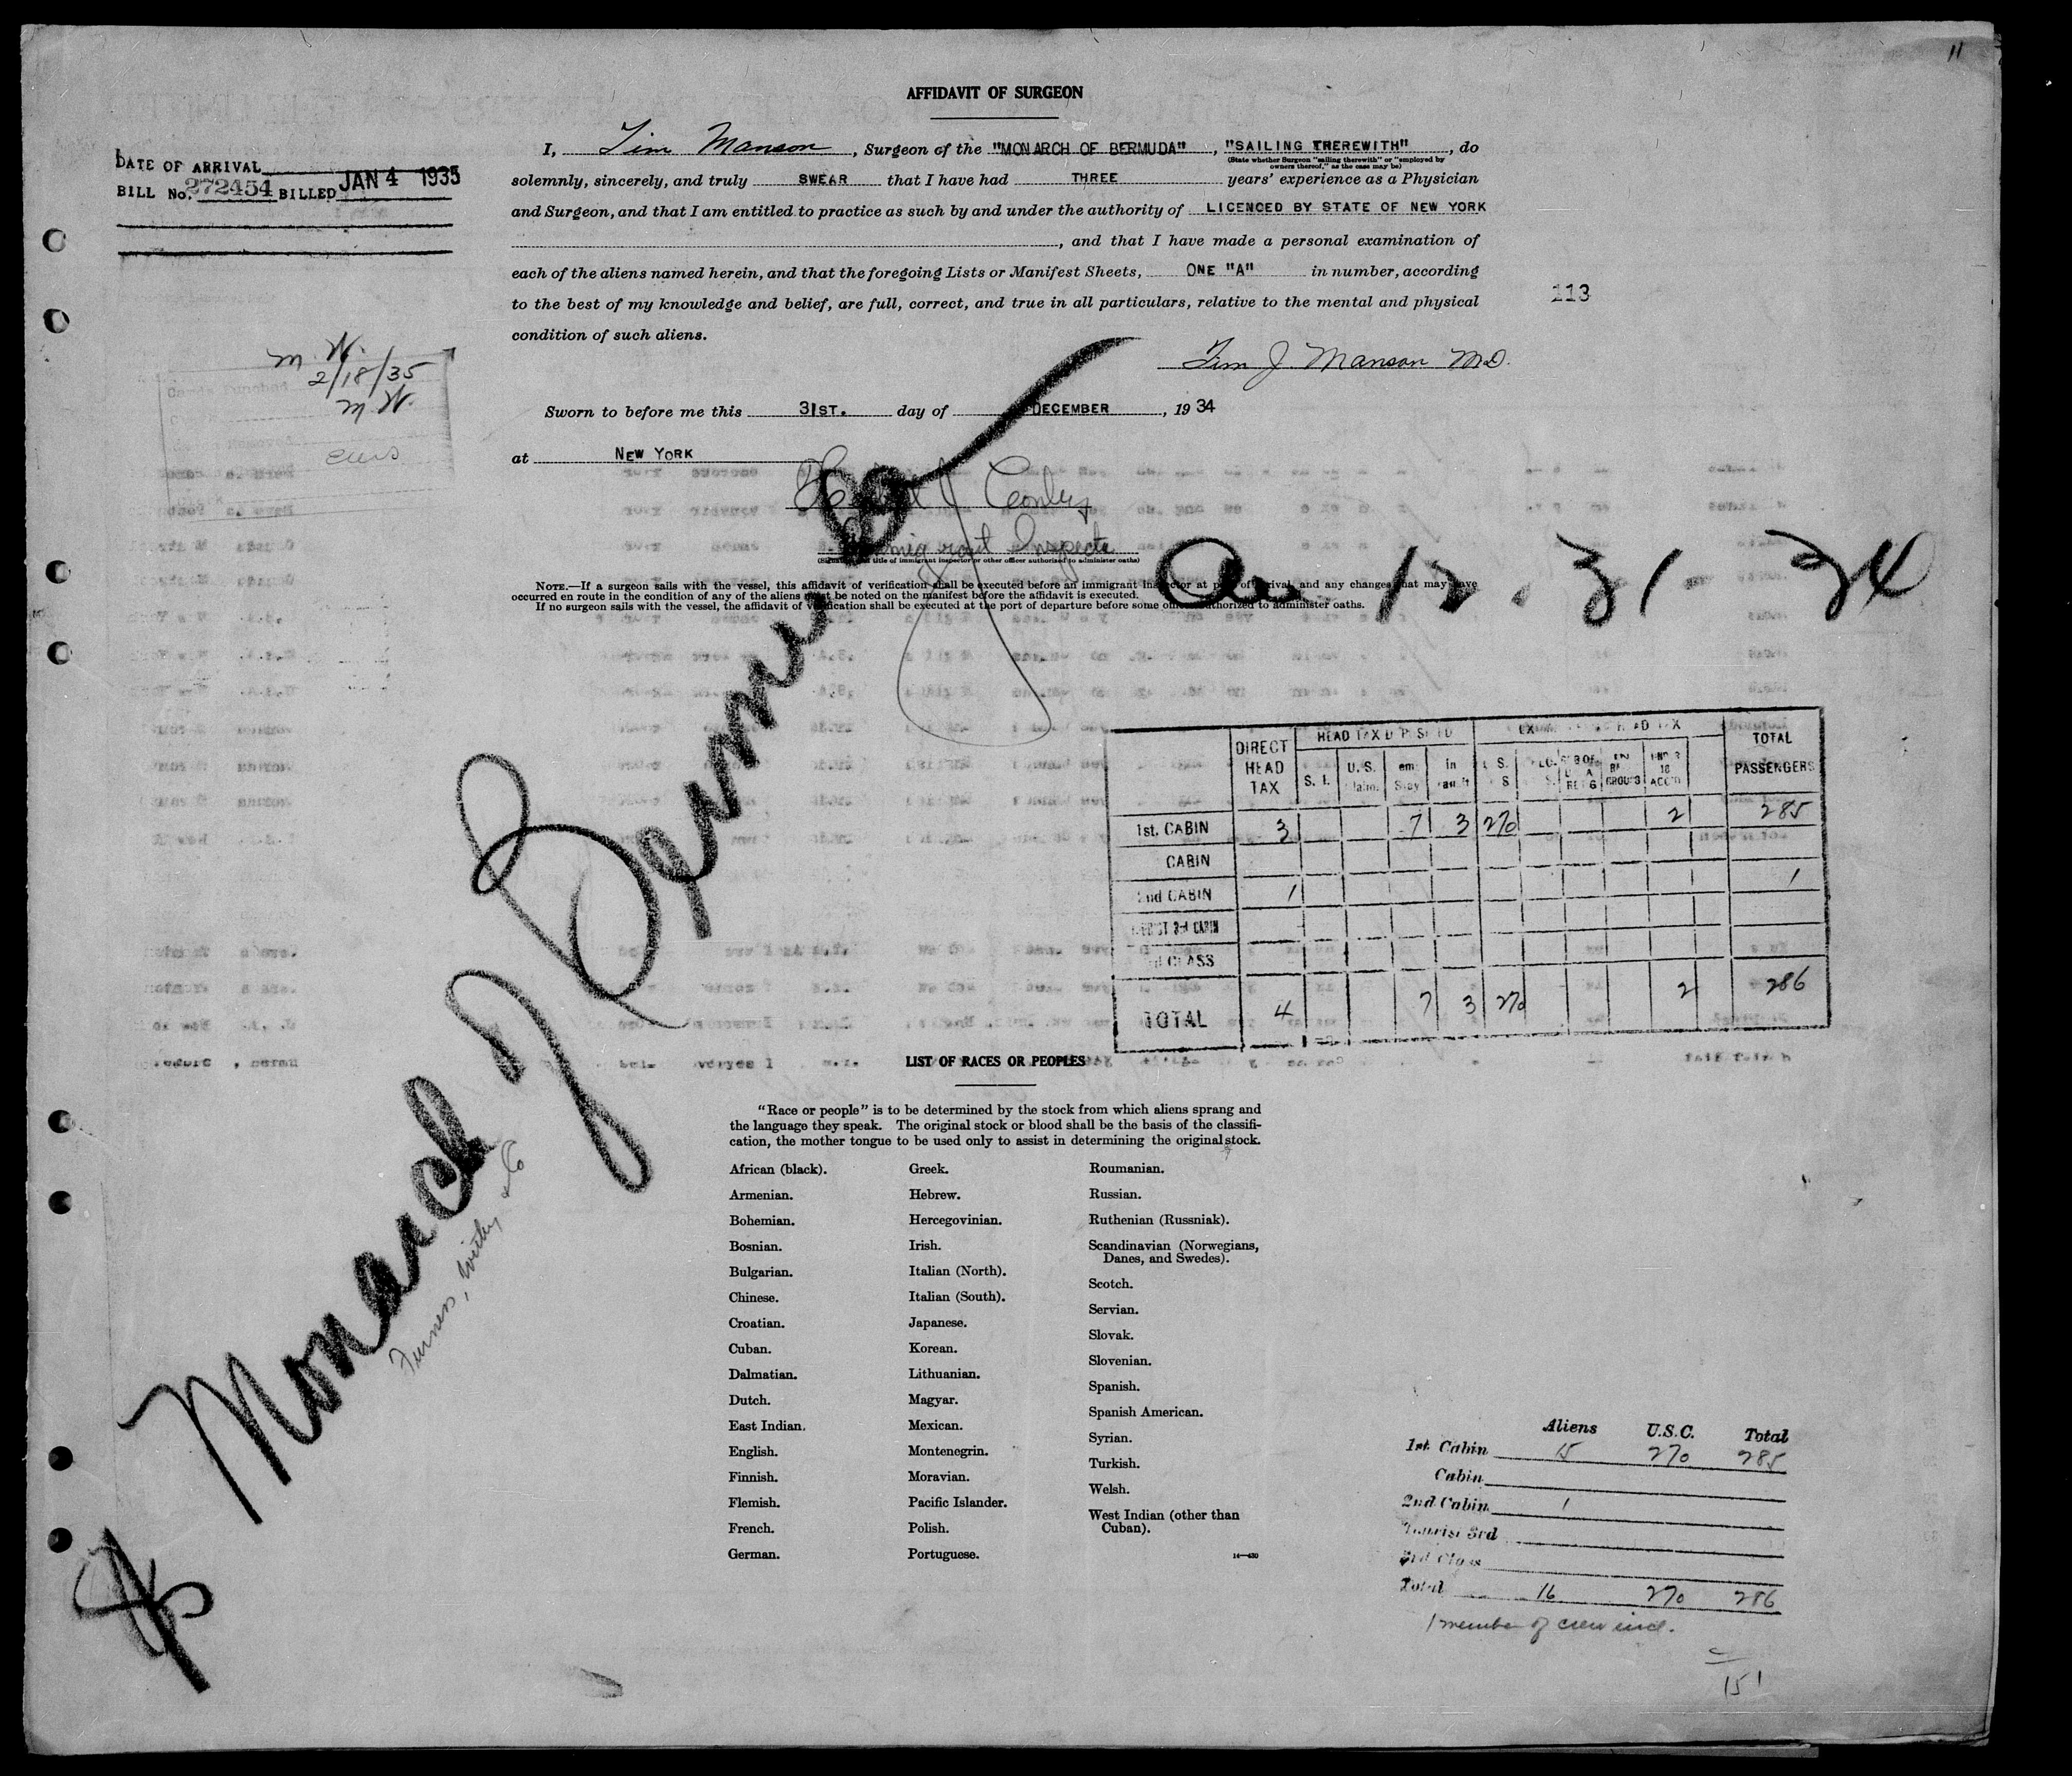 11
AFFIDAVIT OF SURGEON
I, Tim Manson, Surgeon of the "MONARCH OF BERMUDA", "SAILING THEREWITH", do
(State whether Surgeon "sailing therewith" or "employed by
owners thereof," as the case may be)
solemnly, sincerely, and truly SWEAR that I have had THREE years' experience as a Physician
and Surgeon, and that I am entitled to practice as such by and under the authority of LICENCED BY STATE OF NEW YORK
, and that I have made a personal examination of
each of the aliens named herein, and that the foregoing Lists or Manifest Sheets, ONE "A" in number, according
to the best of my knowledge and belief, are full, correct, and true in all particulars, relative to the mental and physical
condition of such aliens.
Tim J Manson M.D.
Sworn to before me this 31ST. day of DECEMBER, 1934
at NEW YORK
Immigrant Inspector
NOTE.—If a surgeon sails with the vessel, this affidavit of verification shall be executed before an immigrant inspector at port of arrival, and any changes that may have
occurred en route in the condition of any of the aliens must be noted on the manifest before the affidavit is executed.
If no surgeon sails with the vessel, the affidavit of verification shall be executed at the port of departure before some officer authorized to administer oaths.
DATE OF ARRIVAL
BILL No. 272454 BILLED JAN 4 1935
M. W.
2/18/35
M W.
113
12.31-34
Monarch of Bermuda
Furness, Withy & Co
DIRECT HEAD TAX
HEAD TAX DEPOSITED
HEAD TAX
TOTAL PASSENGERS
S. I.
U. S.
1st. CABIN 3 7 3 270 2 285
CABIN
2nd CABIN 1 1
3rd CABIN
CLASS
TOTAL 4 7 3 270 2 286
LIST OF RACES OR PEOPLES
"Race or people" is to be determined by the stock from which aliens sprang and
the language they speak. The original stock or blood shall be the basis of the classifi-
cation, the mother tongue to be used only to assist in determining the original stock.
African (black).
Armenian.
Bohemian.
Bosnian.
Bulgarian.
Chinese.
Croatian.
Cuban.
Dalmatian.
Dutch.
East Indian.
English.
Finnish.
Flemish.
French.
German.
Greek.
Hebrew.
Hercegovinian.
Irish.
Italian (North).
Italian (South).
Japanese.
Korean.
Lithuanian.
Magyar.
Mexican.
Montenegrin.
Moravian.
Pacific Islander.
Polish.
Portuguese.
Roumanian.
Russian.
Ruthenian (Russniak).
Scandinavian (Norwegians,
Danes, and Swedes).
Scotch.
Servian.
Slovak.
Slovenian.
Spanish.
Spanish American.
Syrian.
Turkish.
Welsh.
West Indian (other than
Cuban).
14—430
Aliens U.S.C. Total
1st. Cabin 15 270 285
Cabin
2nd Cabin 1
Tourist 3rd
3rd Class
Total 16 270 286
1 member of crew incl.
151